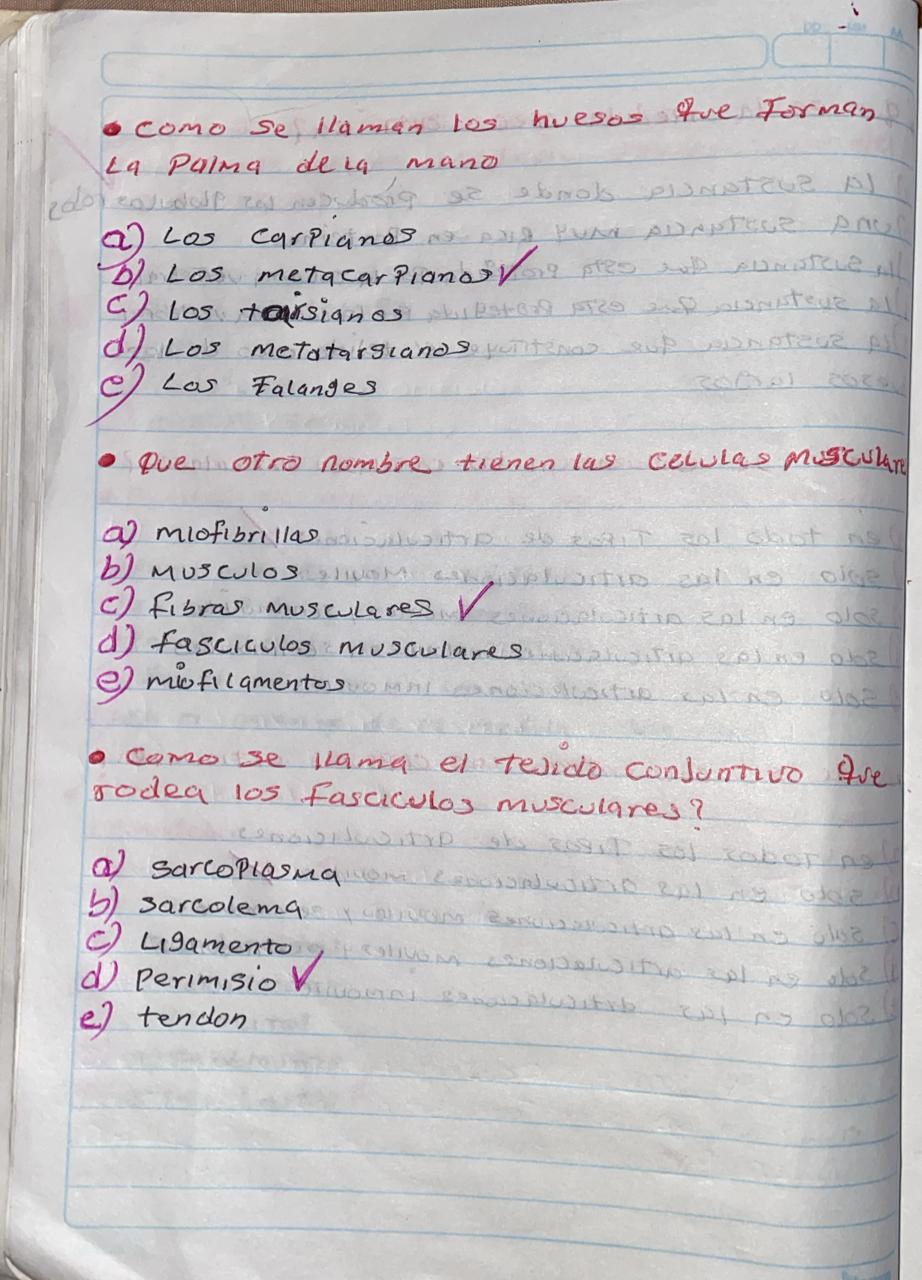 • Como se llaman los huesos que forman
La palma de la mano
a) Los carpianos
b) Los metacarpianos ✓
c) Los tarsianos
d) Los metatarsianos
e) Los Falanges
• Que otro nombre tienen las celulas musculare
a) miofibrillas
b) musculos
c) fibras musculares ✓
d) fasciculos musculares
e) miofilamentos
• Como se llama el tejido conjuntivo que
rodea los fasciculos musculares?
a) sarcoplasma
b) sarcolema
c) Ligamento
d) perimisio ✓
e) tendon